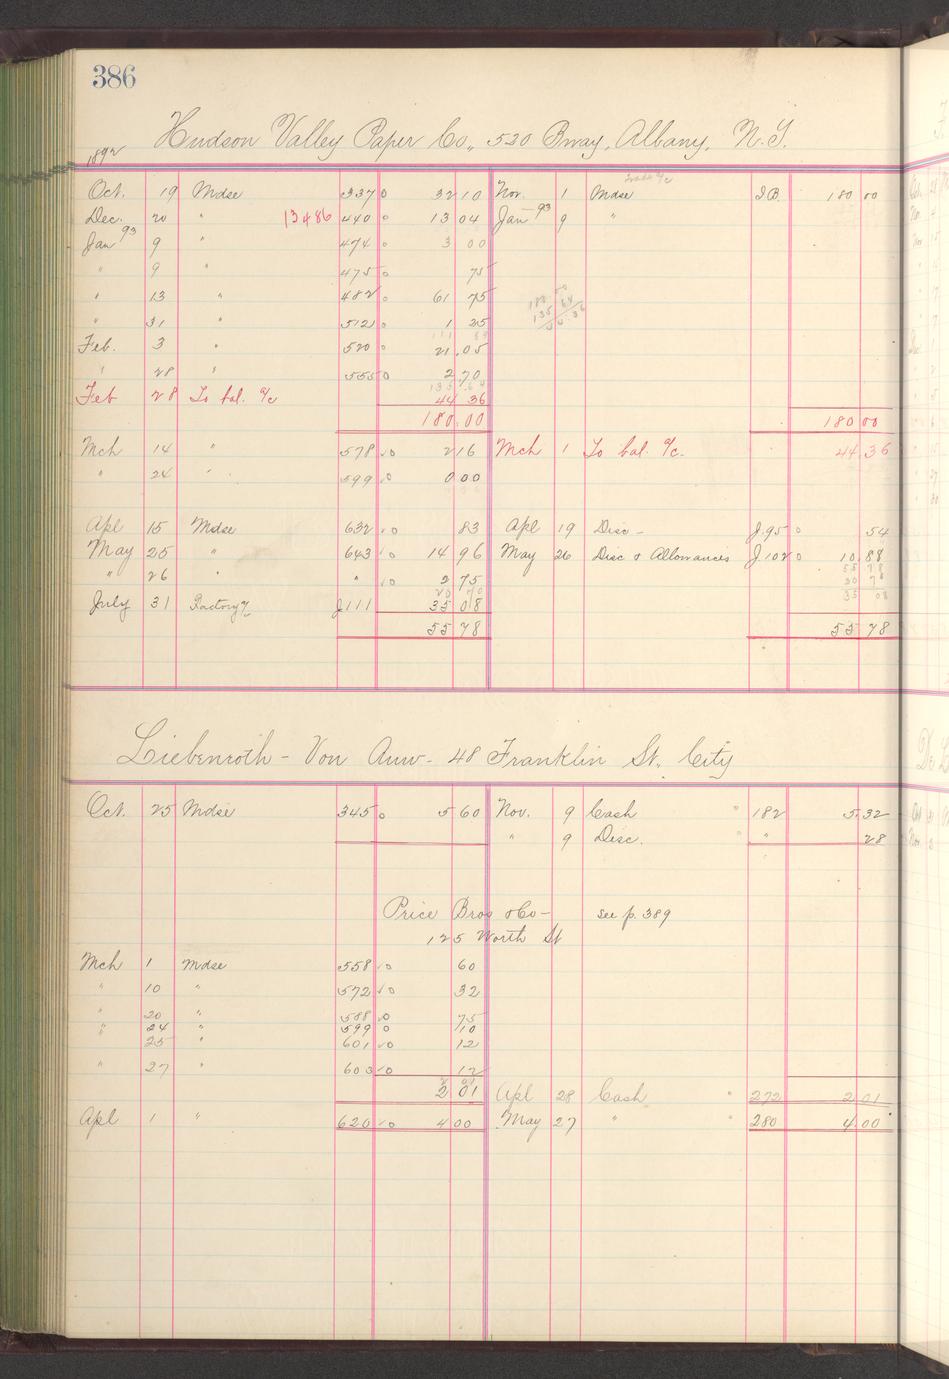 386
Hudson Valley Paper Co., 520 Bway, Albany, N.Y.
1892
Oct. 19 Mdse 337 0 32 10 Nov. 1 Mdse J.B. 180 00
Dec. 20 " 13486 440 0 13 04 Jan 93 9 "
Jan 93 9 " 474 0 3 00
" 9 " 475 0 75
" 13 " 482 0 61 75
180 00
135 64
" 31 " 512 0 1 25
44 36
Feb. 3 " 520 0 21.05
" 28 " 555 0 2 70
135 64
Feb 28 To bal. a/c 44 36
180.00 180 00
Mch 14 " 578 0 2 16 Mch 1 To bal. a/c. 44 36
" 24 " 599 0 0 00
Apl 15 Mdse 632 0 83 Apl 19 Disc - J.95 0 54
May 25 " 643 0 14 96 May 26 Disc & Allowances J.102 0 10.88
" 26 " " 0 2 75
55 78
20 70
20 70
35 08
July 31 Factory J111 35 08
55 78 55 78
Liebenroth - Von Auw - 48 Franklin St. City
Oct. 25 Mdse 345 0 5 60 Nov. 9 Cash " 182 5.32
" 9 Disc. " " 28
Price Bros & Co - see p. 389
125 Worth St
Mch 1 Mdse 558 0 60
" 10 " 572 0 32
" 20 " 588 0 75
" 24 " 599 0 10
25 " 601 0 12
" 27 " 603 0 12
2 01 Apl 28 Cash " 272 2 01
Apl 1 " 620 0 4 00 May 27 " " 280 4.00